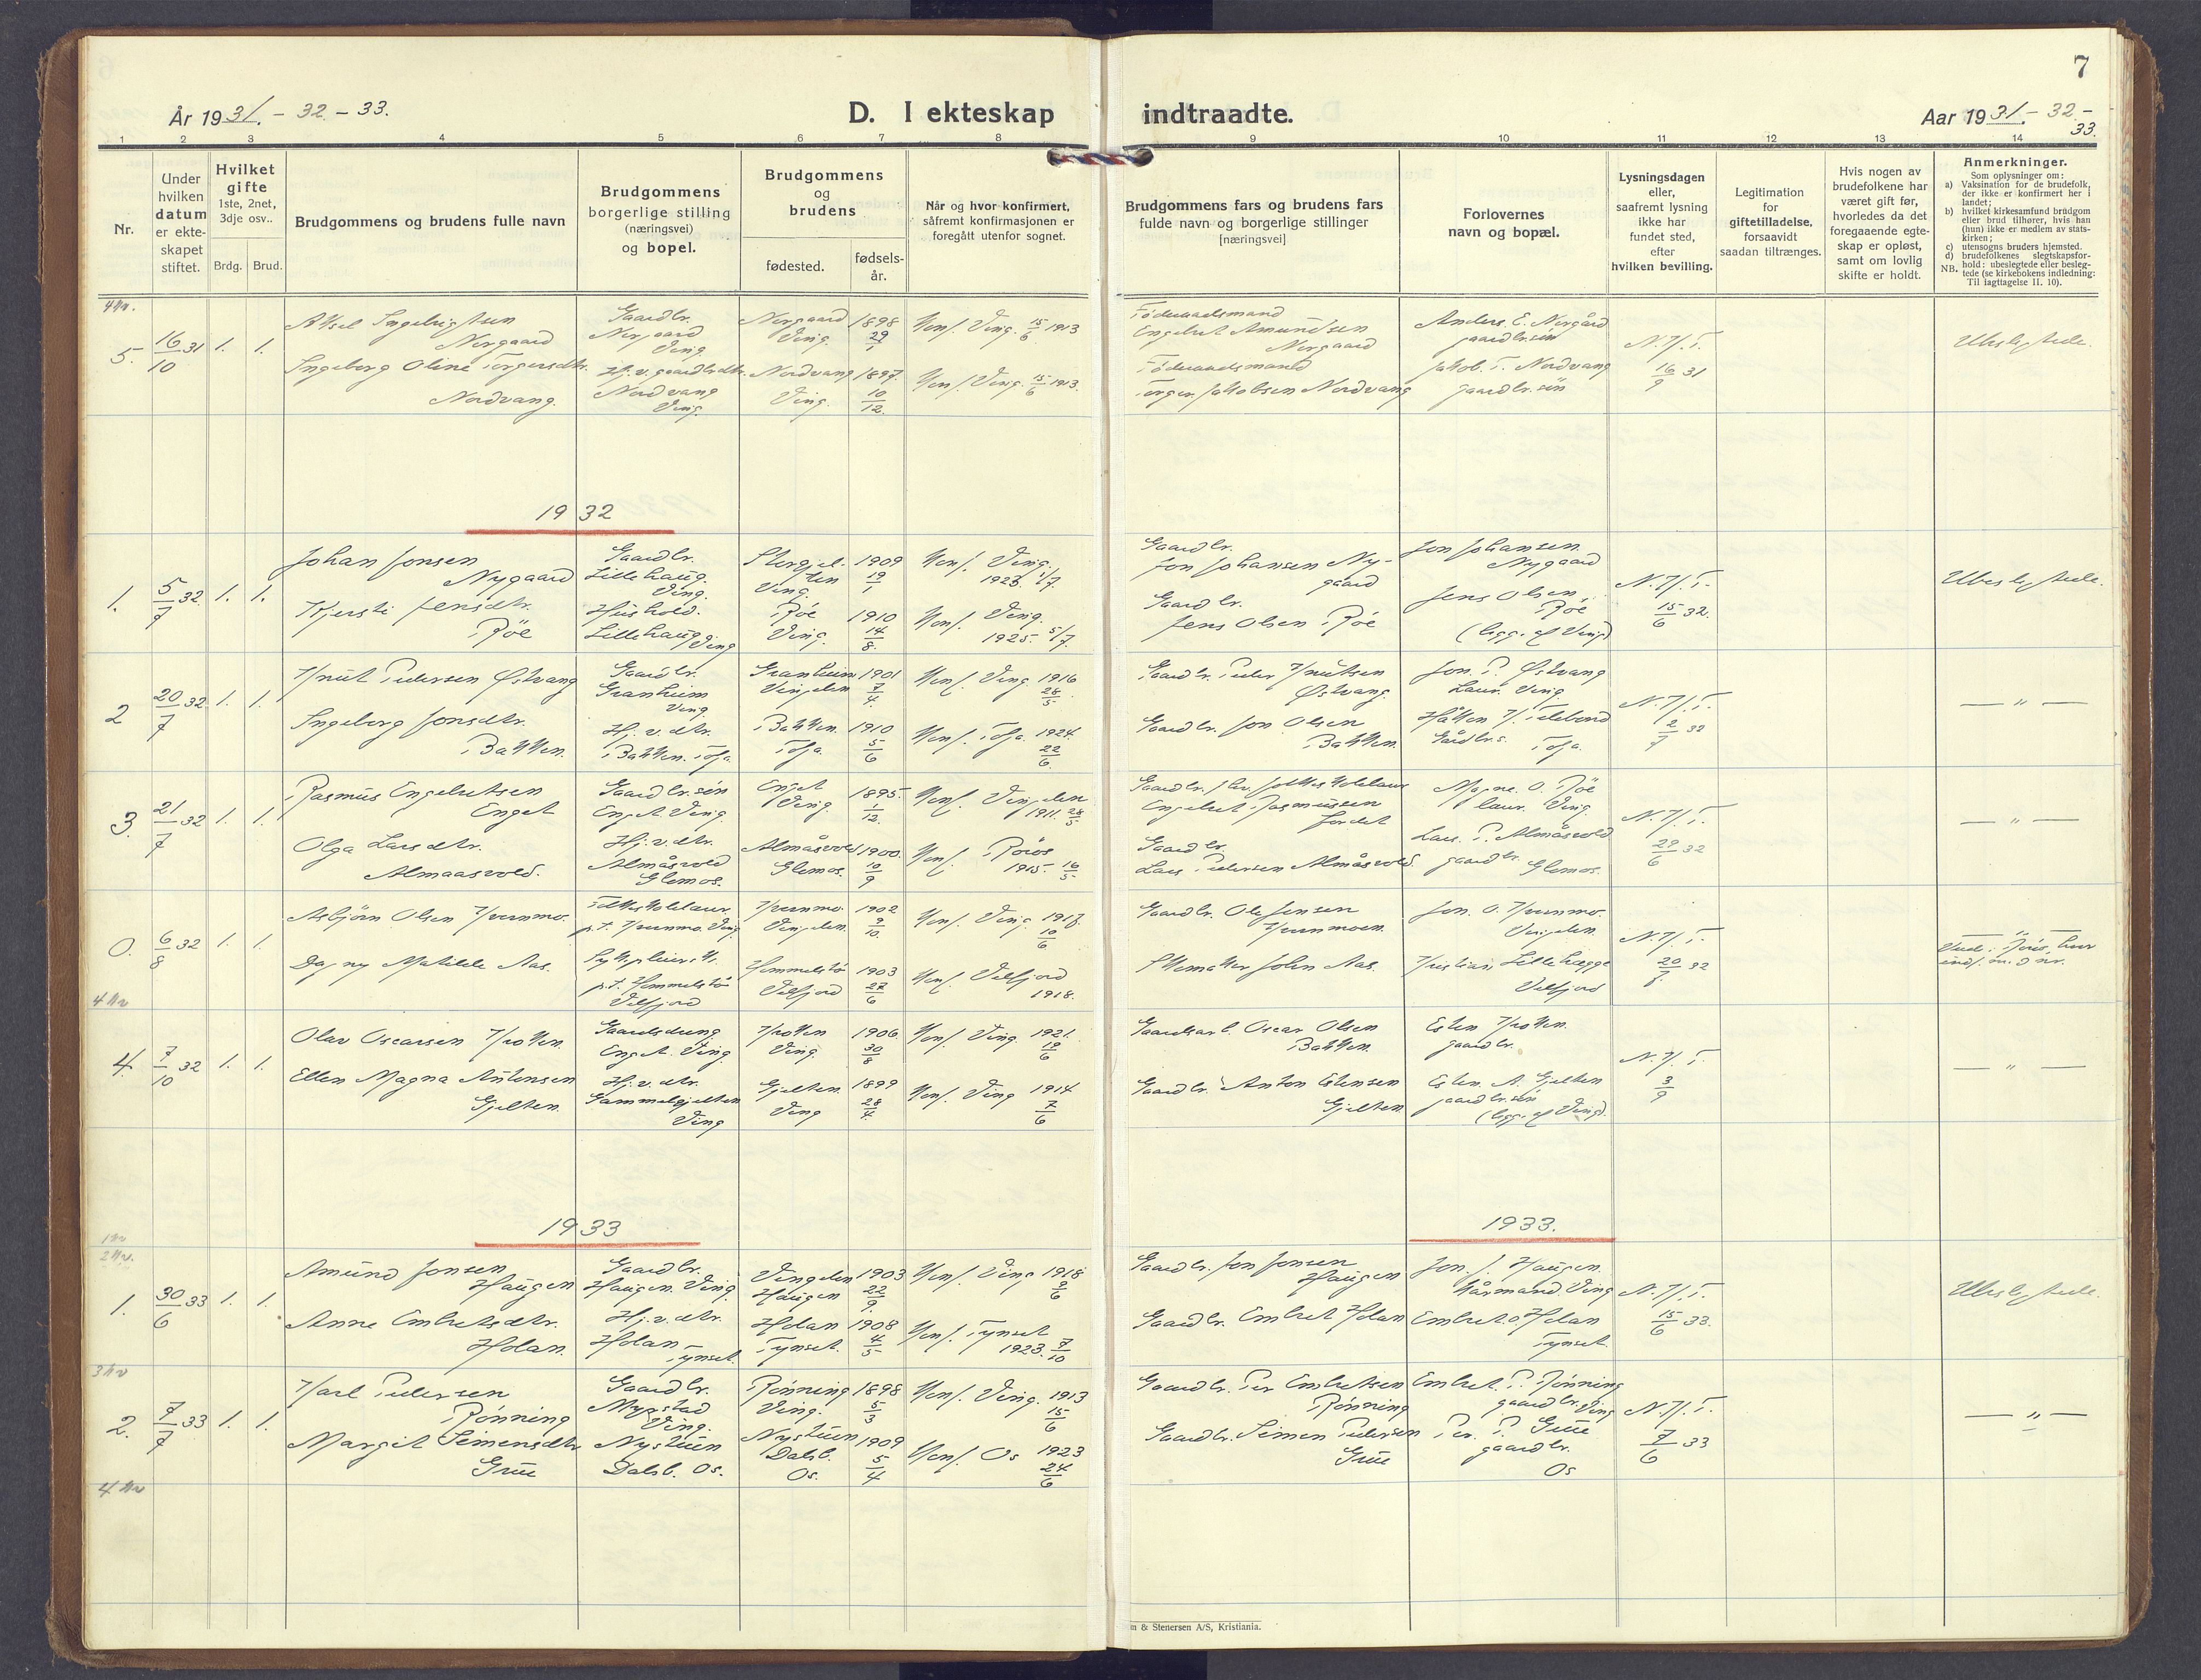 7
År 1931. - 32 - 33.
D. I ekteskap
indtraadte.
Aar 1931. - 32 -
33.
1 2 3 4 5 6 7 8 9 10 11 12 13 14
Nr.
Under
hvilken
datum
er ekte-
skapet
stiftet.
Hvilket
gifte
1ste, 2net,
3dje osv..
Brdg.
Brud.
Brudgommens og brudens fulle navn
Brudgommens
borgerlige stilling
(næringsvei)
og bopel.
Brudgommens
og
brudens
fødested.
fødsels-
år.
Når og hvor konfirmert,
såfremt konfirmasjonen er
foregått utenfor sognet.
Brudgommens fars og brudens fars
fulde navn og borgerlige stillinger
[næringsvei]
Forlovernes
navn og bopæl.
Lysningsdagen
eller,
saafremt lysning
ikke har
fundet sted,
efter
hvilken bevilling.
Legitimation
for
giftetilladelse,
forsaavidt
saadan tiltrænges.
Hvis nogen av
brudefolkene har
været gift før,
hvorledes da det
foregaaende egte-
skap er opløst,
samt om lovlig
skifte er holdt.
Anmerkninger.
Som oplysninger om:
a) Vaksination for de brudefolk,
der ikke er konfirmert her i
landet;
b) hvilket kirkesamfund brudgom
eller brud tilhører, hvis han
(hun) ikke er medlem av stats-
kirken;
c) utensogns bruders hjemsted.
d) brudefolkenes slegtskapsfor-
hold: ubeslegtede eller besleg-
NB. tede (se kirkebokens indledning:
Til iagttagelse II. 10).
5. 16/10 31 1. 1.
Aksel Ingebrigtsen
Nergaard
Gaardbr.
Nergaard
Ving.
Nergaard
Ving.
1898
29/1
Konf. Ving. 15/6 1913
Föderaadsmand
Engebret Amundsen
Nergaard
Anders E. Nergård
gaardbr.sön
N. K. T.
16/9 31
Ubeslegtede.
Ingeborg Oline Torgersdtr.
Nordvang.
Hj. v. gaardbrdtr.
Nordvang
Ving.
Nordvang
Ving.
1897.
10/12.
Konf. Ving. 15/6 1913.
Föderaadsmand
Torger Jakobsen Nordvang
Jakob T. Nordvang
gaardbr. sön
1932
1. 5/7 32. 1. 1.
Johan Jonsen
Nygaard
Gaardbr.
Lillehaug.
Ving.
Ving.
1909
19/1
Konf. Ving.
1923. 1/7.
Gaardbr.
Jon Johansen Ny-
gaard
Jon Johansen
Nygaard
N. K. T.
15/6 32.
Ubeslegtede.
Kjersti Jensdtr.
Röe
Hushold.
Lillehaug Ving
Röe
Ving.
1910
14/8.
Konf. Ving.
1925. 5/7.
Gaardbr.
Jens Olsen Röe
Jens Olsen
Röe
(begge af Ving)
2 20/7 32. 1. 1.
Knut Pedersen Østvang
Gaardbr.
Granheim
Ving
Granheim
Vingelen
1901
7/4
Konf. Ving. 1916
28/5.
Gaardbr. Peder Knutsen
Østvang.
Jon P. Østvang
Ving.
N. K. T.
2/7 32
— " —
Ingeborg Jonsdtr.
Bakken.
Hj. v. dtr.
Bakken. Tolga
Bakken.
Tolga.
1910
5/6
Konf. Tolga. 1924.
22/6.
Gaardbr. Jon Olsen
Bakken.
Gårdbr.s. Tolga.
3. 21/7 32 1. 1.
Rasmus Engebretsen
Enget
Gaardbr.sön
Enget Ving.
Enget
Ving
1895.
1/12.
Konf. Vingelen
1911. 28/5
Engebret Rasmussen
Jordet
Magne O. Röe
Ving.
N. K. T.
29/6 32
— " —
Olga Larsdtr.
Almaasvold.
Hj. v. dtr.
Almåsvold
Glomos.
Almåsvold
Glåmos.
1900.
10/9
Konf. Röros
1915. 16/5
Gaardbr.
Lars Pedersen Almåsvold
Lars. P. Almåsvold
gaardbr. Glomos.
0. 6/8 32 1. 1.
Asbjörn Olsen Kvernmo.
p.t. Kvernmo. Ving
Kvernmo.
Vingelen.
1902
9/10.
Konf. Ving 1917.
10/6
Gaardbr. Ole Jensen
Kvernmoen.
Jon. O. Kvernmo.
Vingelen.
N. K. T.
32
Dagny Matilde Aas.
p.t. Hommelstö
Velfjord
Hommelstö
Velfjord
1903
27/6
Konf. Velfjord
1918.
Skomaker John Aas.
Kristian Lillehægge
Velfjord
4. 7/10 32 1. 1.
Olav Oscarsen Kroken.
Gaardsdreng
Enget. Ving.
Kroken
Ving.
1906.
30/8
Konf. Ving. 1921.
19/6
Gaardsarb. Oscar Olsen
Bakken.
Esten Kroken.
gaardbr.
N. K. T.
3/9
— " —
Ellen Magna Antonsen
Gjelten.
Hj. v. dtr.
Gammelgjelten
Ving
Gjelten.
Ving
1899
28/4.
Konf. Ving 1914
7/6
Gaardbr. Anton Estensen
Gjelten
Esten. A. Gjelten
gaardbr.sön
(begge af Ving).
1933
1933.
1. 30/6 33 1. 1.
Amund Jonsen
Haugen
Gaardbr.
Haugen. Ving.
Vingelen
Haugen
1903
22/9.
Konf. Ving 1918
9/6
Gaardbr. Jon Jonsen
Haugen
Jon. J. Haugen.
Ving
N. K. T.
15/6 33.
Ubeslegtede.
Anne Embretsdtr.
Holan.
Hj. v. dtr.
Holan
Tynset.
Holan
Tynset.
1908
4/5
Konf. Tynset
1923. 7/10
Gaardbr. Embret Holan
Embret O. Holan
Tynset.
2. 7/7 33 1. 1.
Karl Pedersen
Rönning
Gaardbr.
Ving.
Rönning
Ving.
1898
5/3
Konf. Ving. 1913
15/6
Gaardbr. Per Embretsen
Rönning
Embret. P. Rönning
gaardbr. Ving
N. K. T.
7/6 33
— " —
Margit Simensdtr
Grue
Nystuen
Dalsb. Os.
Nystuen
Dalsb.
Os.
1909
5/4
Konf. Os 1923
24/6
Gaardbr. Simen Pedersen
Grue
Per. P. Grue
gaardbr.
Os
& Stenersen A/S, Kristiania.